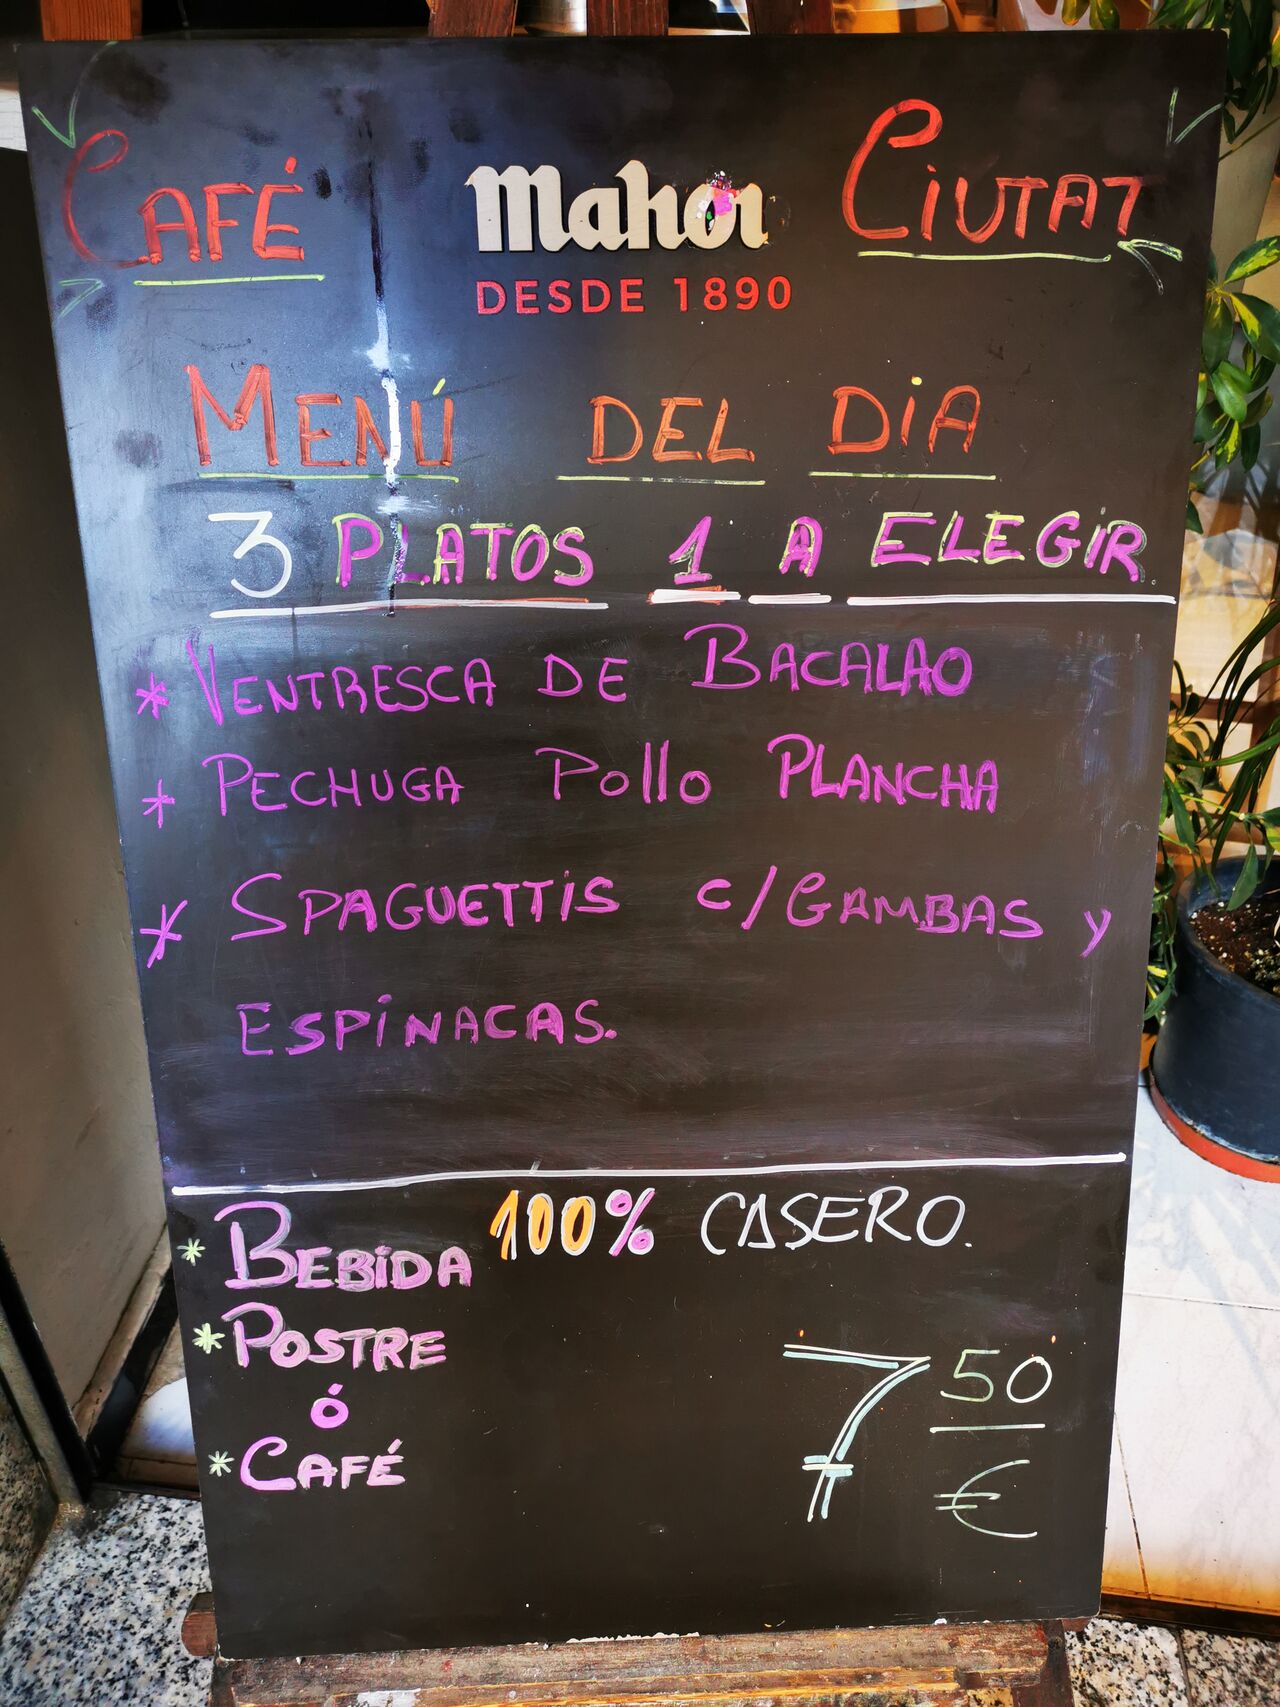 CAFÉ Mahou CIUTAT
DESDE 1890
MENÚ DEL DiA
3 PLATOS 1 A ELEGiR
* VENTRESCA DE BACALAO
* PECHUGA Pollo PLANCHA
* SPAGUETTiS c/GAMBAS y
ESPiNACAS.
100% CASERO.
* BEBiDA
* POSTRE
ó
* CAFÉ
7 50 €